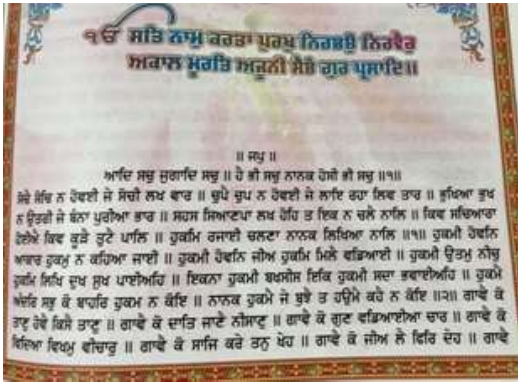 ੴ ਸਤਿ ਨਾਮੁ ਕਰਤਾ ਪੁਰਖੁ ਨਿਰਭਉ ਨਿਰਵੈਰੁ
ਅਕਾਲ ਮੂਰਤਿ ਅਜੂਨੀ ਸੈਭੰ ਗੁਰ ਪ੍ਰਸਾਦਿ॥
॥ ਜਪੁ ॥
ਆਦਿ ਸਚੁ ਜੁਗਾਦਿ ਸਚੁ ॥ ਹੈ ਭੀ ਸਚੁ ਨਾਨਕ ਹੋਸੀ ਭੀ ਸਚੁ ॥੧॥
ਸੋਚੈ ਸੋਚਿ ਨ ਹੋਵਈ ਜੇ ਸੋਚੀ ਲਖ ਵਾਰ ॥ ਚੁਪੈ ਚੁਪ ਨ ਹੋਵਈ ਜੇ ਲਾਇ ਰਹਾ ਲਿਵ ਤਾਰ ॥ ਭੁਖਿਆ ਭੁਖ
ਨ ਉਤਰੀ ਜੇ ਬੰਨਾ ਪੁਰੀਆ ਭਾਰ ॥ ਸਹਸ ਸਿਆਣਪਾ ਲਖ ਹੋਹਿ ਤ ਇਕ ਨ ਚਲੈ ਨਾਲਿ ॥ ਕਿਵ ਸਚਿਆਰਾ
ਹੋਈਐ ਕਿਵ ਕੂੜੈ ਤੁਟੈ ਪਾਲਿ ॥ ਹੁਕਮਿ ਰਜਾਈ ਚਲਣਾ ਨਾਨਕ ਲਿਖਿਆ ਨਾਲਿ ॥੧॥ ਹੁਕਮੀ ਹੋਵਨਿ
ਆਕਾਰ ਹੁਕਮੁ ਨ ਕਹਿਆ ਜਾਈ ॥ ਹੁਕਮੀ ਹੋਵਨਿ ਜੀਅ ਹੁਕਮਿ ਮਿਲੈ ਵਡਿਆਈ ॥ ਹੁਕਮੀ ਉਤਮੁ ਨੀਚੁ
ਹੁਕਮਿ ਲਿਖਿ ਦੁਖ ਸੁਖ ਪਾਈਅਹਿ ॥ ਇਕਨਾ ਹੁਕਮੀ ਬਖਸੀਸ ਇਕਿ ਹੁਕਮੀ ਸਦਾ ਭਵਾਈਅਹਿ ॥ ਹੁਕਮੈ
ਅੰਦਰਿ ਸਭੁ ਕੋ ਬਾਹਰਿ ਹੁਕਮ ਨ ਕੋਇ ॥ ਨਾਨਕ ਹੁਕਮੈ ਜੇ ਬੁਝੈ ਤ ਹਉਮੈ ਕਹੈ ਨ ਕੋਇ ॥੨॥ ਗਾਵੈ ਕੋ
ਤਾਣੁ ਹੋਵੈ ਕਿਸੈ ਤਾਣੁ ॥ ਗਾਵੈ ਕੋ ਦਾਤਿ ਜਾਣੈ ਨੀਸਾਣੁ ॥ ਗਾਵੈ ਕੋ ਗੁਣ ਵਡਿਆਈਆ ਚਾਰ ॥ ਗਾਵੈ ਕੋ
ਵਿਦਿਆ ਵਿਖਮੁ ਵੀਚਾਰੁ ॥ ਗਾਵੈ ਕੋ ਸਾਜਿ ਕਰੇ ਤਨੁ ਖੇਹ ॥ ਗਾਵੈ ਕੋ ਜੀਅ ਲੈ ਫਿਰਿ ਦੇਹ ॥ ਗਾਵੈ